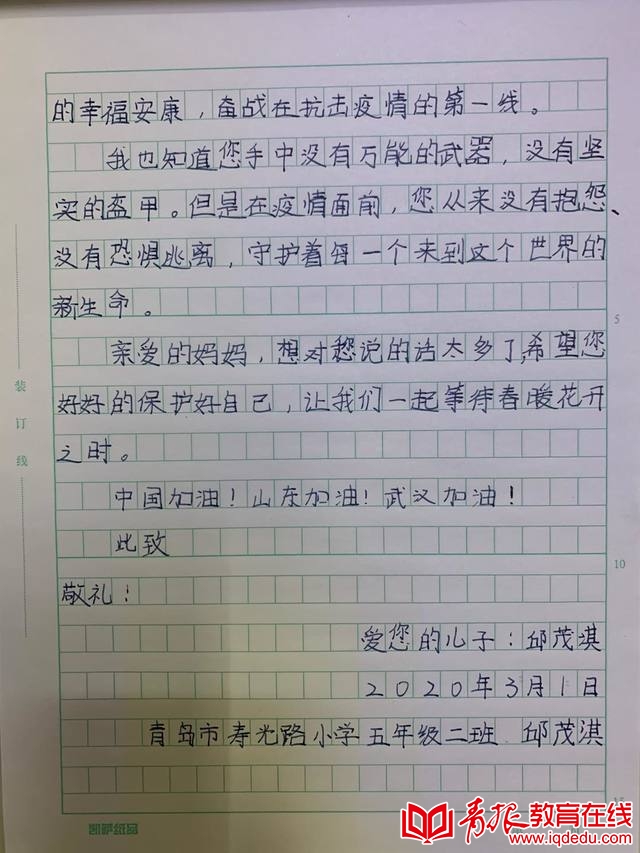 的幸福安康，奋战在抗击疫情的第一线。
我也知道您手中没有万能的武器，没有坚
实的盔甲。但是在疫情面前，您从来没有抱怨、
没有恐惧逃离，守护着每一个来到这个世界的
新生命。
5
亲爱的妈妈，想对您说的话太多了，希望您
好好的保护好自己，让我们一起等待春暖花开
之时。
中国加油！山东加油！武汉加油！
此致
10
敬礼！
爱您的儿子：邱茂淇
2020年3月1日
青岛市寿光路小学五年级二班 邱茂淇
装订线
凯萨纸品
青报教育在线
www.iqdedu.com